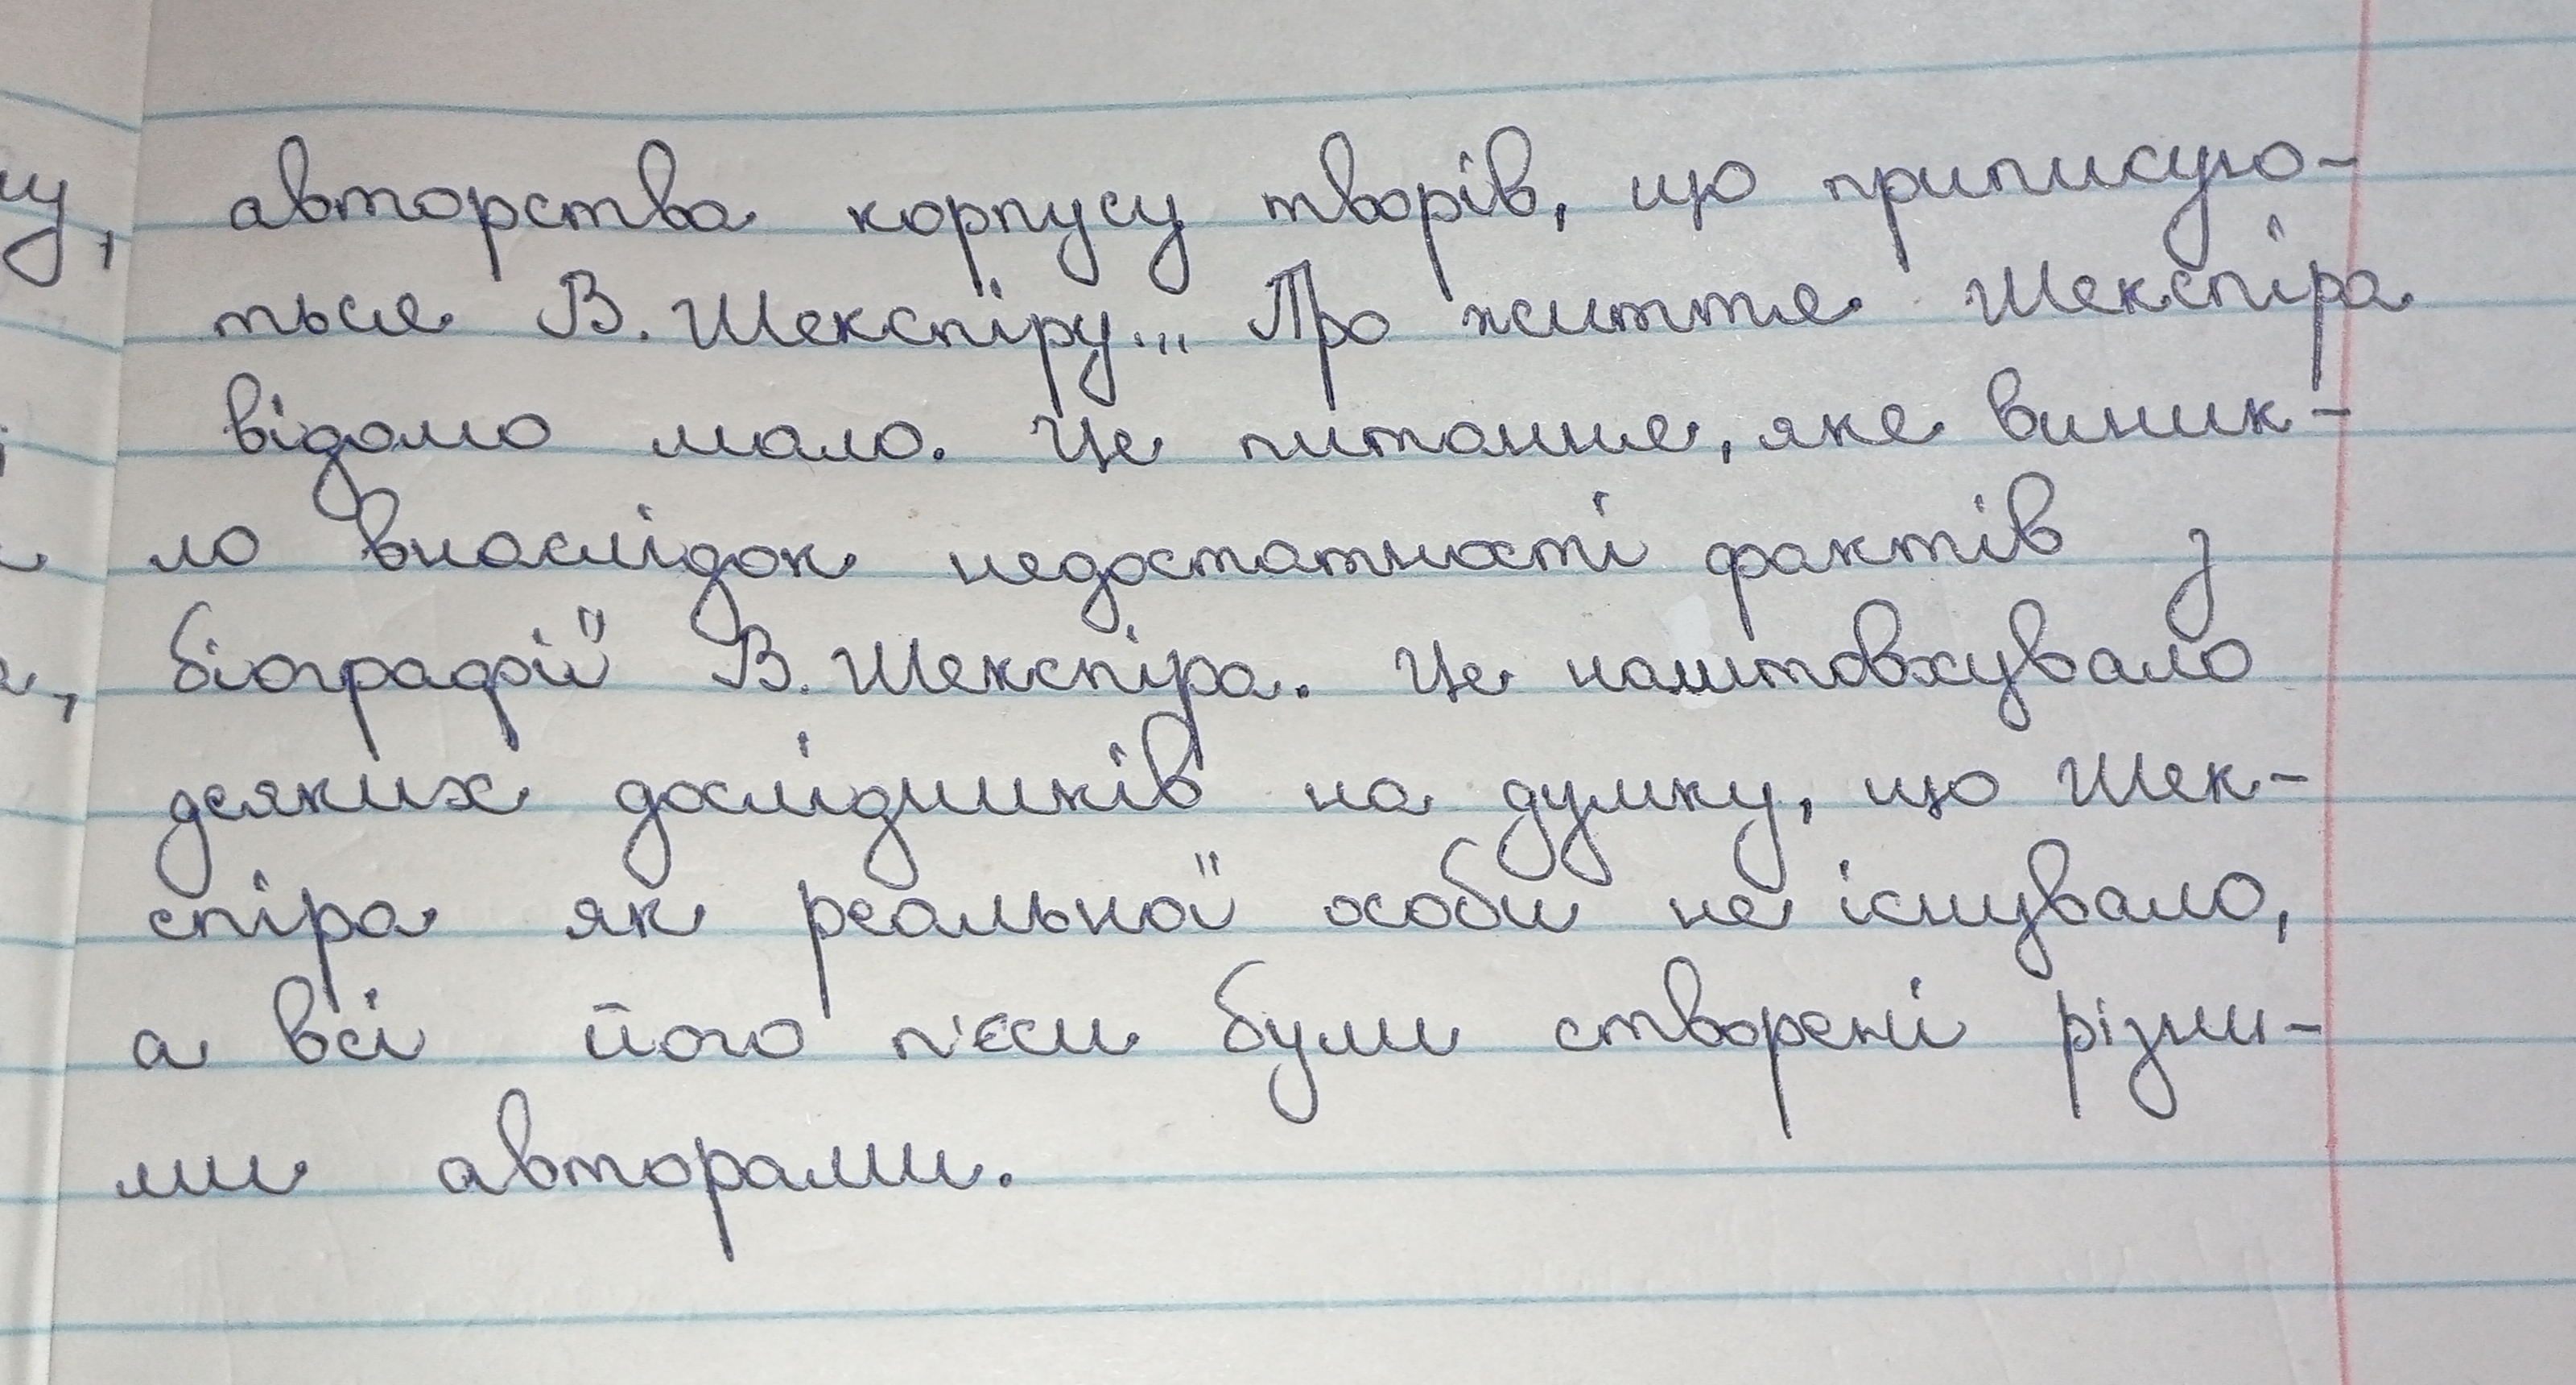 авторства корпусу творів, що приписую-
ться В. Шекспіру... Про життя Шекспіра
відомо мало. Це питання, яке виник-
ло внаслідок недостатності фактів з
біографії В. Шекспіра. Це наштовхувало
деяких дослідників на думку, що Шек-
спіра як реальної особи не існувало,
а всі його п'єси були створені різни-
ми авторами.